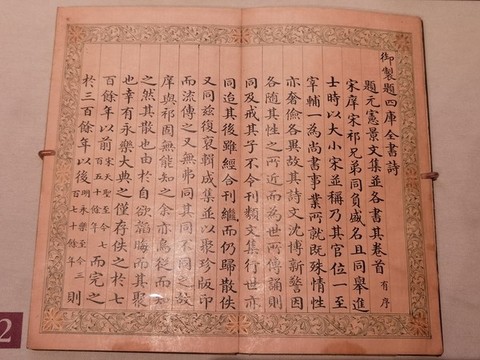 御製題四庫全書詩
題元憲景文集並各書其卷首有序
宋庠宋祁兄弟同負盛名且同舉進
士時以大小宋並稱乃其官位一至
宰輔一為尚書事業所就既殊情性
亦奢儉各異故其詩文沈博新警因
各隨其性之所近而為世所傳誦則
同及戒其子不令刊類文集行世亦
同迨其後雖經合刊繼而仍歸散佚
又同茲復裒輯成集並以聚珍版印
而流傳之又無弗同其同不同之故
庠與祁固無能知之余亦烏從而
之然其散也由於自欲韜晦而其聚
也幸有永樂大典之僅存佚之於七
百餘年以前宋天聖至今七百五十餘年而完之
於三百餘年以後明永樂至今三百七十餘年則
2